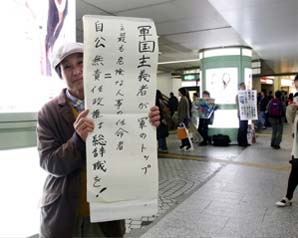 軍国主義者が軍のトップ
=最も危険な人事の任命者
=
自公無責任政権は総辞職を!